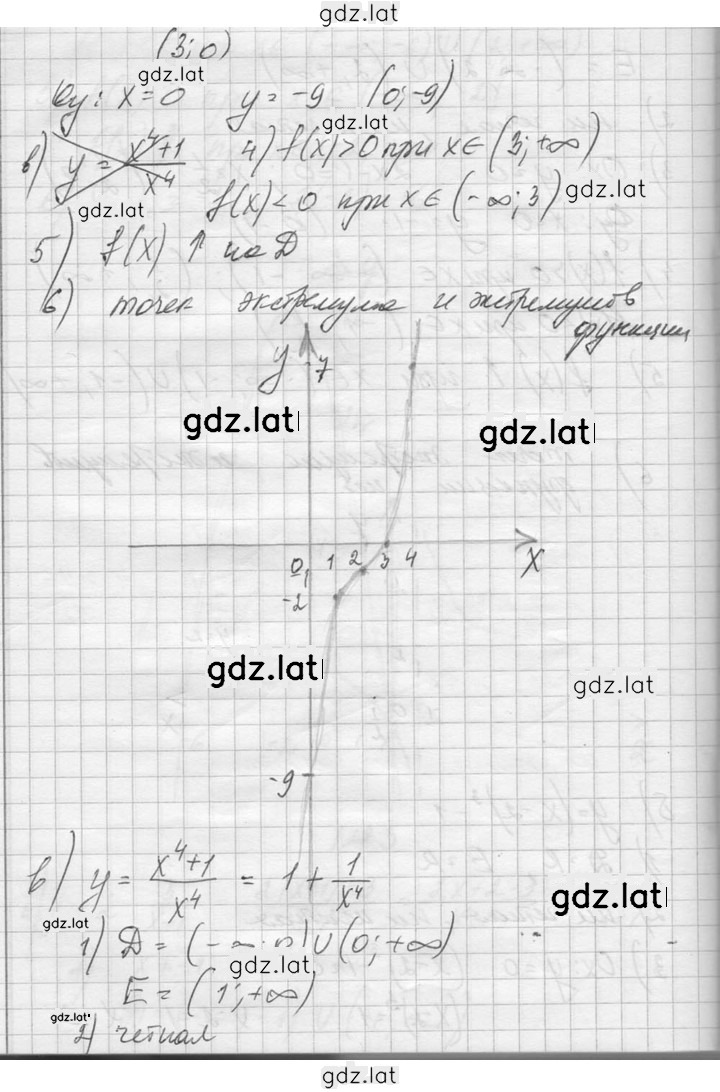 gdz.lat
(3; 0)
gdz.lat
Oy: x = 0 y = -9 (0; -9)
в) y = x⁴+1 / x⁴ 4) f(x) > 0 при x ∈ (3; +∞)
gdz.lat
f(x) < 0 при x ∈ (-∞; 3) gdz.lat
5) f(x) ↑ на D
6) точек экстремума и экстремумов
функции
y 7
gdz.lat gdz.lat
0 1 2 3 4 x
-2
gdz.lat gdz.lat
-9
в) y = x⁴+1 / x⁴ = 1 + 1 / x⁴
gdz.lat
gdz.lat
1) D = (-∞; 0) ∪ (0; +∞)
gdz.lat
E = (1; +∞)
gdz.lat
2) четная
gdz.lat